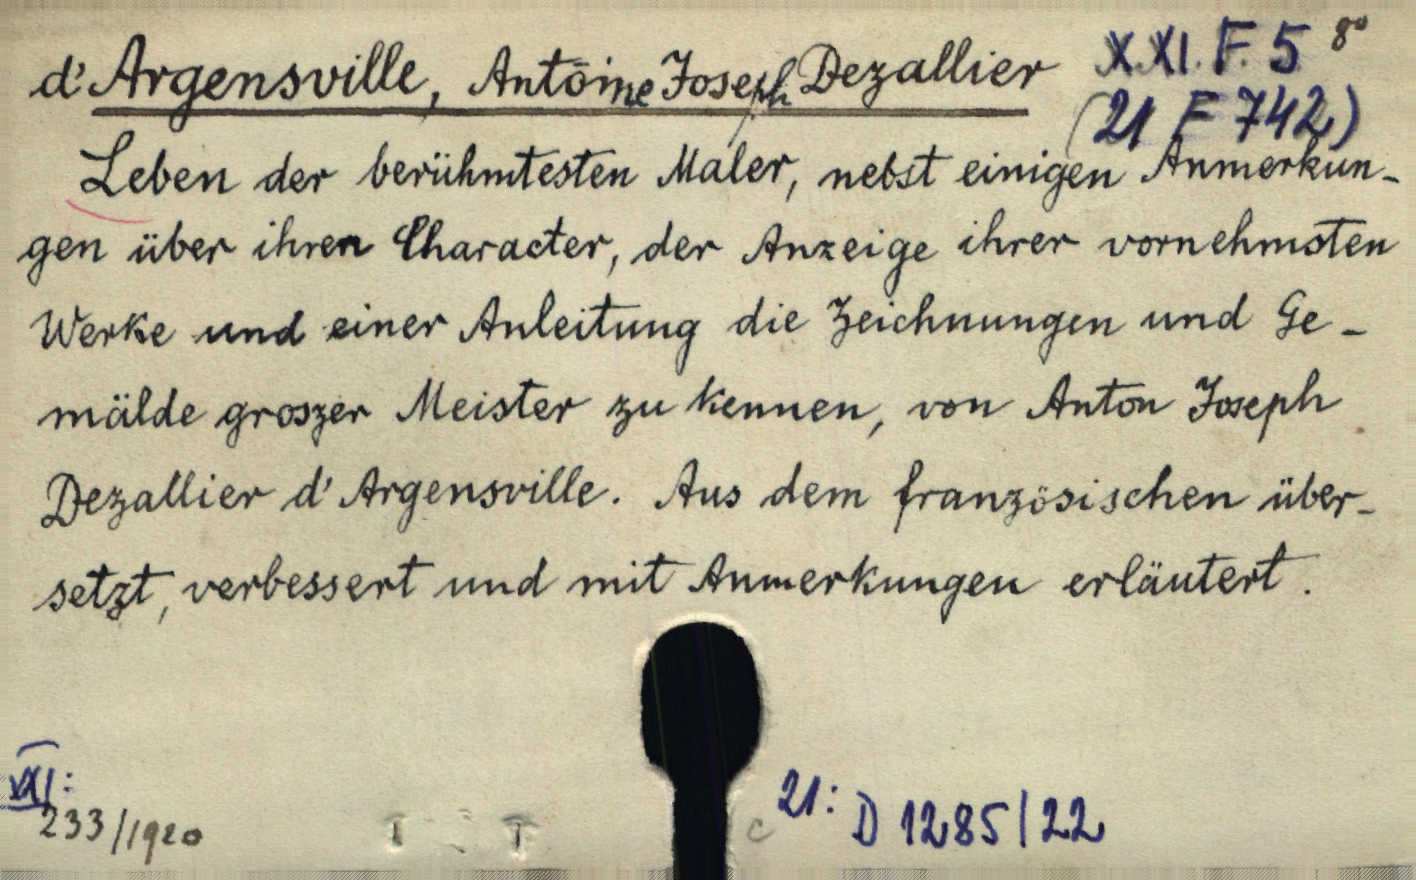 d'Argensville, Antoine Joseph Dezallier
XXI. F. 5 8°
(21 F 742)
Leben der berühmtesten Maler, nebst einigen Anmerkun-
gen über ihren Character, der Anzeige ihrer vornehmsten
Werke und einer Anleitung die Zeichnungen und Ge-
mälde groszer Meister zu kennen, von Anton Joseph
Dezallier d'Argensville. Aus dem französischen über-
setzt, verbessert und mit Anmerkungen erläutert.
XXI:
233/1920
c 21: D 1285/22